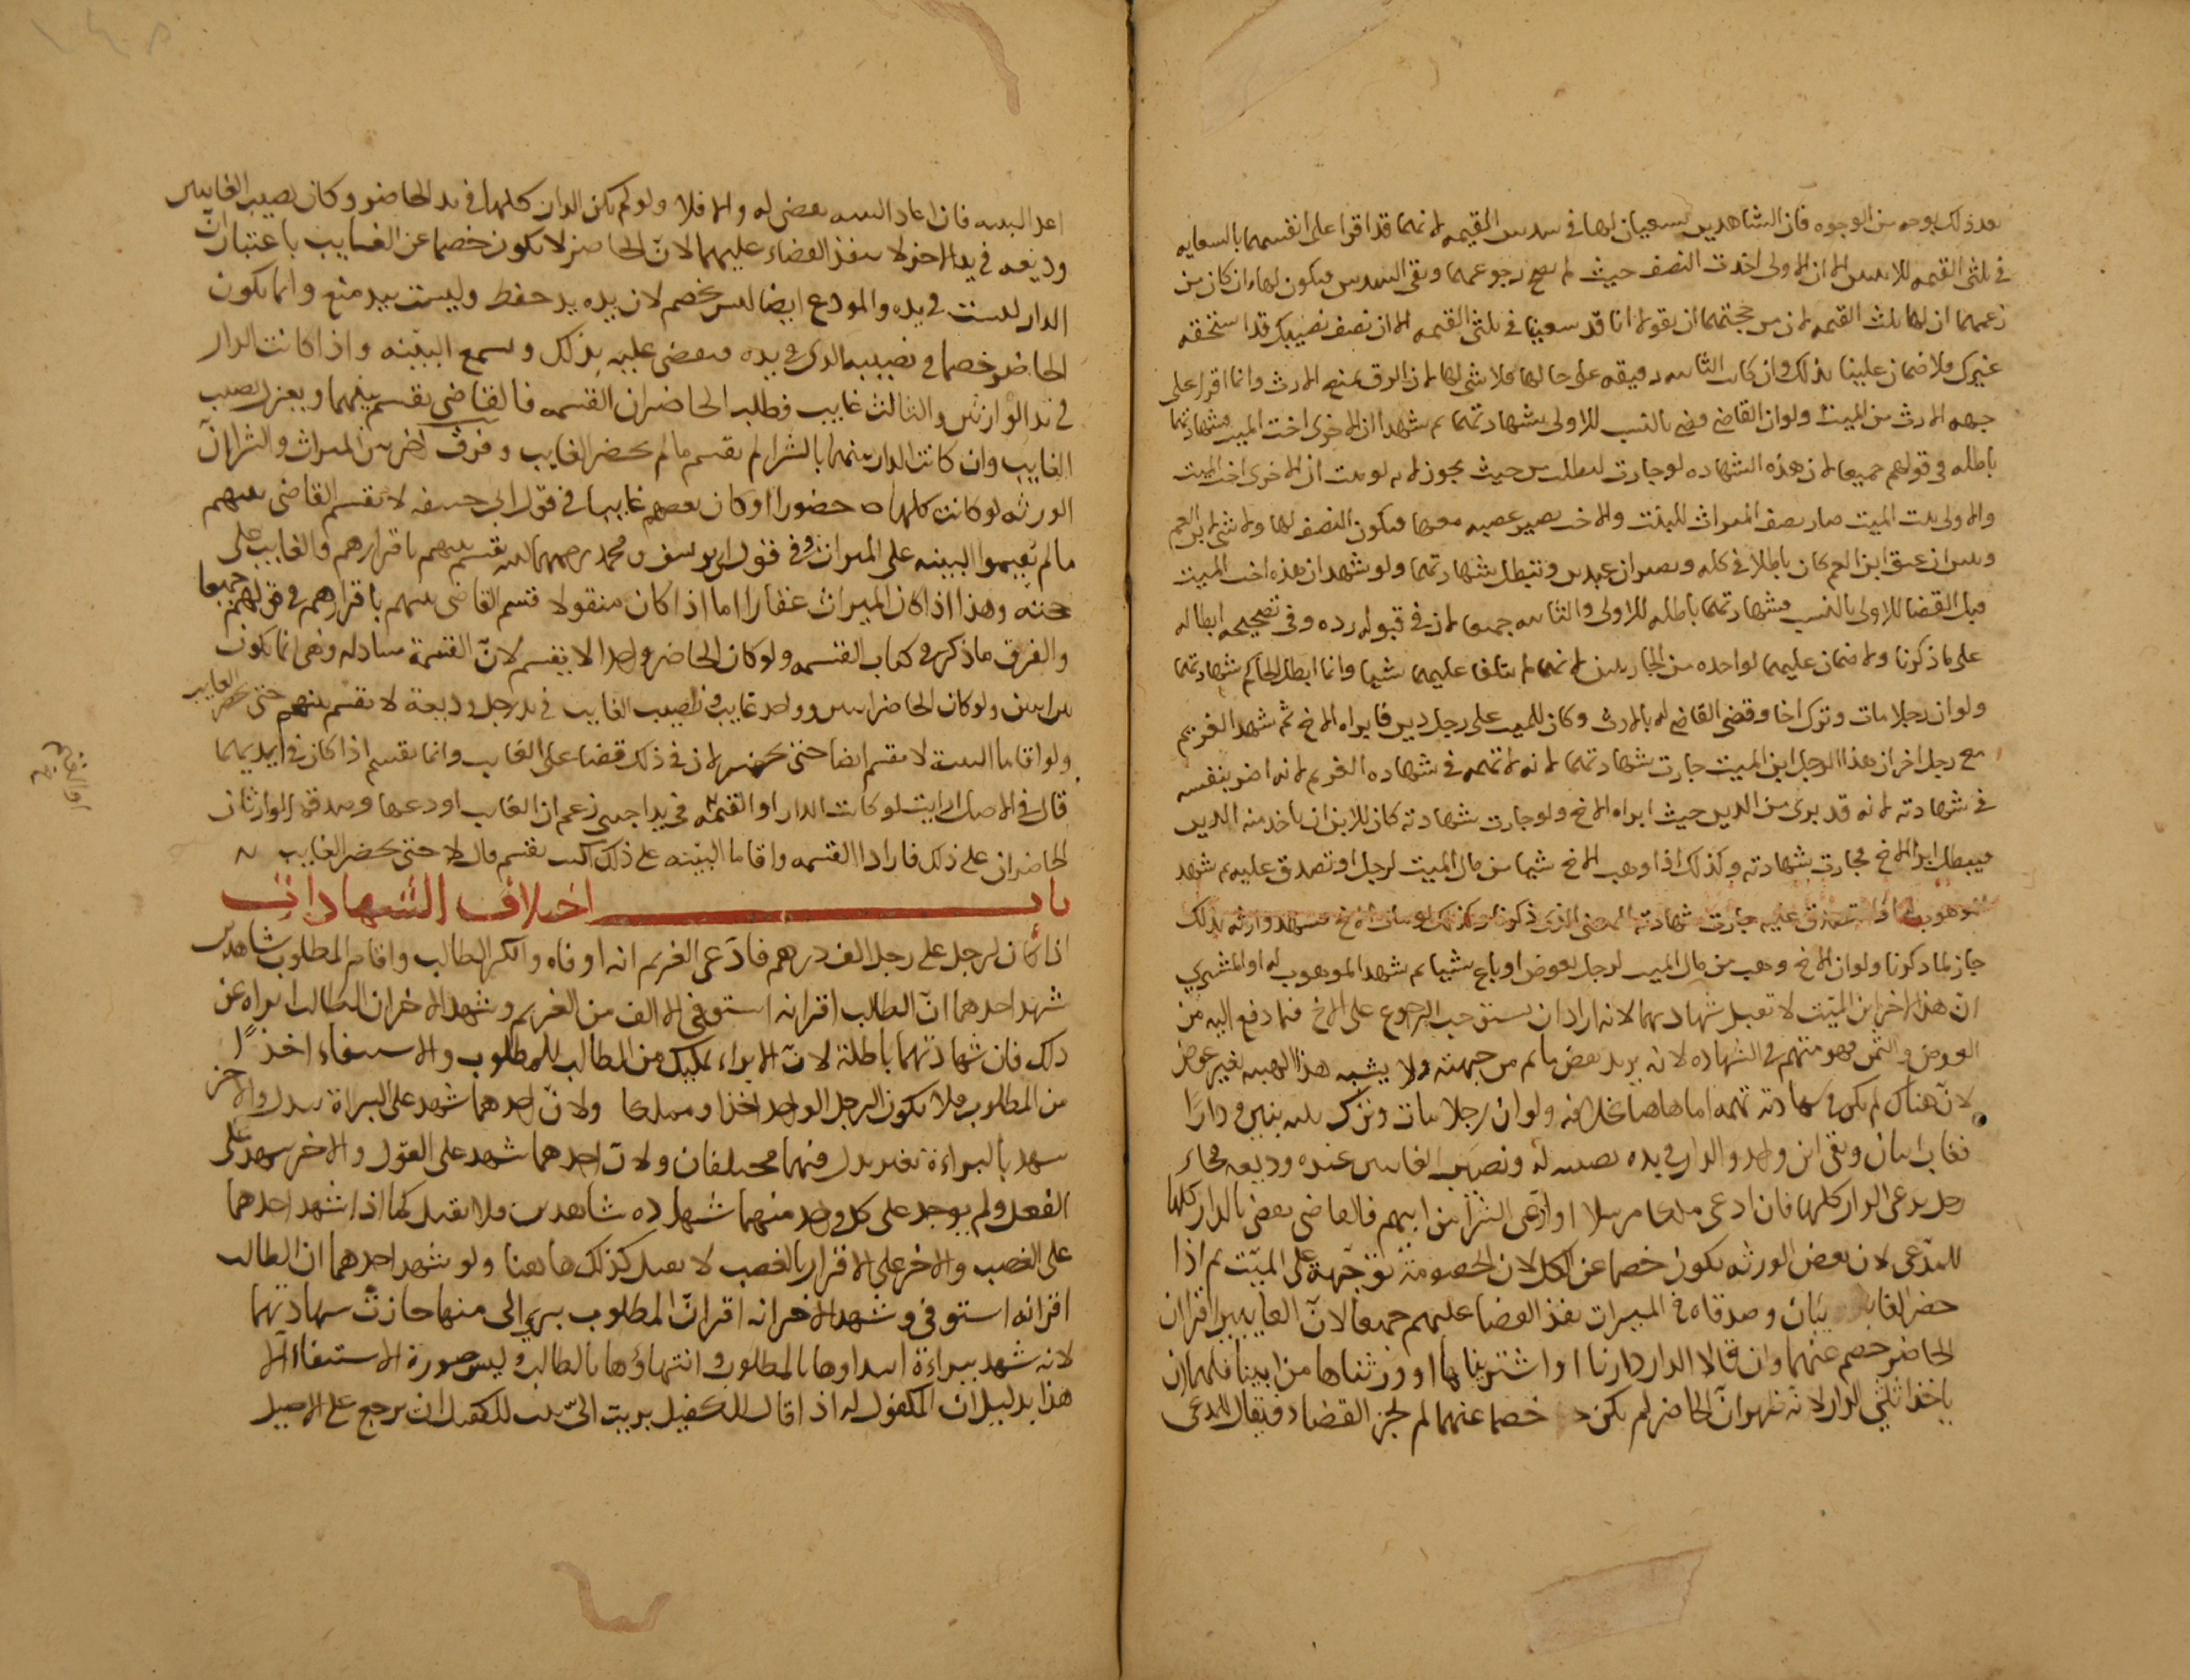 بعد ذلك بوجه من الوجوه فان الشاهدين يسعيان لها في سدس القيمه لانهما قد اقرا على انفسهما بالسعايه
في ثلثى القيمه للابنتين الا ان الاولى اخذت النصف حيث لم يصح رجوعهما وبقى السدس فيكون لها وان كان من
زعمهما ان لها ثلث القيمه لان من حجتهما ان يقولا انا قد سعينا في ثلثى القيمه الا ان نصف نصيبك قد استحقه
غيرك فلا ضمان علينا بذلك وان كانت الثانيه رقيقه على حالها فلا شى لها لان الرق يمنع الارث وانما اقرا على
جهه الارث من الميت ولو ان القاضي قضى بالنسب للاولى بشهادتهما ثم شهدا ان الاخرى اخت الميت فشهادتهما
باطله في قولهم جميعا لان هذه الشهاده لو جازت لبطلت من حيث يجوز لانه لو ثبت ان الاخرى اخت الميت
والاولى بنت الميت صار نصف الميراث للبنت والاخت يصير عصبه معها فيكون النصف لها ولا شى لابن العم
وتبين ان عتق ابن العم كان باطلا في كله ويصيران عبدين وتبطل شهادتهما ولو شهدا ان هذه اخت الميت
قبل القضا للاولى بالنسب فشهادتهما باطله للاولى والثانيه جميعا لان في قبوله رده وفي تصحيحه ابطاله
على ما ذكرنا ولا ضمان عليهما لواحده من الجاريتين لانهما لم يتلفا عليهما شيا وانما ابطل الحاكم شهادتهما
ولو ان رجلا مات وترك اخا وقضى القاضي له بالارث وكان للميت على رجل دين فابراه الاخ ثم شهد الغريم
مع رجل اخر ان هذا الرجل ابن الميت جازت شهادتهما لانه لا تهمه في شهاده الغريم لانه اضر بنفسه
في شهادته لانه قد برى من الدين حيث ابراه الاخ ولو جازت شهادته كان للابن ان ياخذ منه الدين
فيبطل ابرا الاخ فجازت شهادته وكذلك اذا وهب الاخ شيا من مال الميت لرجل او تصدق عليه ثم شهد
جاز لما ذكرنا ولو ان الاخ وهب من مال الميت لرجل بعوض او باع شيا ثم شهد الموهوب له او المشتري
انّ هذا الاخر ابن الميّت لا تقبل شهادتهما لانه اراد ان يستوجب الرجوع على الاخ فيما دفع اليه من
العوض والثمن فهو متهم في الشهاده لانه يريد نقض ما تم من جهته ولا يشبه هذا الهبه بغير عوض
لانّ هناك لم يكن في شهادته تهمه اما هاهنا بخلافه ولو ان رجلا مات وترك ثلثه بنين ودارًا
فغاب اثنان وبقى ابن واحد والدار في يده نصيبه له ونصيب الغائبين عنده وديعه فجاء
رجل يدعى الدار كلها فان ادعى ملكا مرسلا او ادّعى الشرا من ابيهم فالقاضى يقضى بالدار كلها
للمدّعى لان بعض الورثه يكون خصما عن الكل لان الخصومة توجّهت على الميّت ثم اذا
حضر الغايبان وصدقاه في الميراث نفذ القضا عليهم جميعا لانّ الغايبين اقرا ان
الحاضر خصم عنهما وان قالا الدار دارنا او اشتريناها او ورثناها من ابينا فلهما ان
ياخذا ثلثي الدار لانه ظهر انّ الحاضر لم يكن خصما عنهما لم يجز القضاء ويقال للمدعى
اعد البينه فان اعاد البينه يقضى له والا فلا ولو لم يكن الدار كلها في يد الحاضر وكان نصيب الغايبين
وديعه في يد اخر لا ينفذ القضاء عليهما لانّ الحاضر لا يكون خصما عن الغايب باعتبار انّ
الدار ليست في يده والمودع ايضا ليس بخصم لان يده يد حفظ وليست بيد منع وانما يكون
الحاضر خصما في نصيبه الذى في يده فيقضى عليه بذلك ويسمع البيّنه واذا كانت الدار
في يد الوارثين والثالث غايب فطلب الحاضران القسمه فالقاضى يقسم بينهما ويعزل نصيب
الغايب وان كانت الدار بينهما بالشرا لم يقسم ما لم يحضر الغايب وفرق اخر بين الميراث والشرا انّ
الورثه لو كانت كلها حضورا او كان بعضهم غايبا في قول ابى حنيفه لا يقسم القاضى بينهم
ما لم يقيموا البينه على الميراث وفي قول ابى يوسف ومحمد رحمهما الله يقسم بينهم باقرارهم والغايب على
حجته وهذا اذا كان الميراث عقارا اما اذا كان منقولا قسم القاضى بينهم باقرارهم في قولهم جميعا
والفرق ما ذكر في كتاب القسمه ولو كان الحاضر واحدا لا يقسم لانّ القسمة مبادله وهى انما تكون
بين اثنين ولو كان الحاضر اثنين وواحد غايب ونصيب الغايب في يد رجل وديعة لا يقسم بينهم حتى يحضر الغايب
ولو اقاما البينه لا يقسم ايضا حتى يحضر لان في ذلك قضا على الغايب وانما يقسم اذا كان في ايديهما
قال في الاصل ارايت لو كانت الدار او القيّم في يد اجنبى زعم ان الغايب اودعها وصدقه الوارثان
الحاضران على ذلك فارادا القسمه واقاما البيّنه على ذلك اكنت تقسم قال لا حتى يحضر الغايب
باب اختلاف الشهادات
اذا كان لرجل على رجل الف درهم فادّعى الغريم انه اوفاه وانكر الطالب واقام المطلوب شاهدين
شهد احدهما انّ الطالب اقر انه استوفى الالف من الغريم وشهد الاخر ان الطالب ابراه عن
ذلك فان شهادتهما باطلة لانّ الابراء تمليك من الطالب للمطلوب والاستيفاء اخذًا
من المطلوب فلا يكون الرجل الواحد اخذا ومملكا ولانّ احدهما شهد على البراة ببدل والاخر
شهد بالبراءة بغير بدل فهما مختلفان ولان احدهما شهد على القول والاخر شهد على
الفعل ولم يوجد على كل واحد منهما شهاده شاهدين فلا تقبل كما اذا شهد احدهما
على الغصب والاخر على الاقرار بالغصب لا تقبل كذلك هاهنا ولو شهد احدهما ان الطالب
اقر انه استوفى وشهد الاخر انه اقر انّ المطلوب برى الى منها جازت شهادتهما
لانه شهد ببراءة ابتداوها بالمطلوب وانتهاؤها بالطالب وليس صورة الاستيفاء الا
هذا بدليل ان المكفول له اذا قال للكفيل بريت الىّ يثبت للكفيل ان يرجع على الاصيل